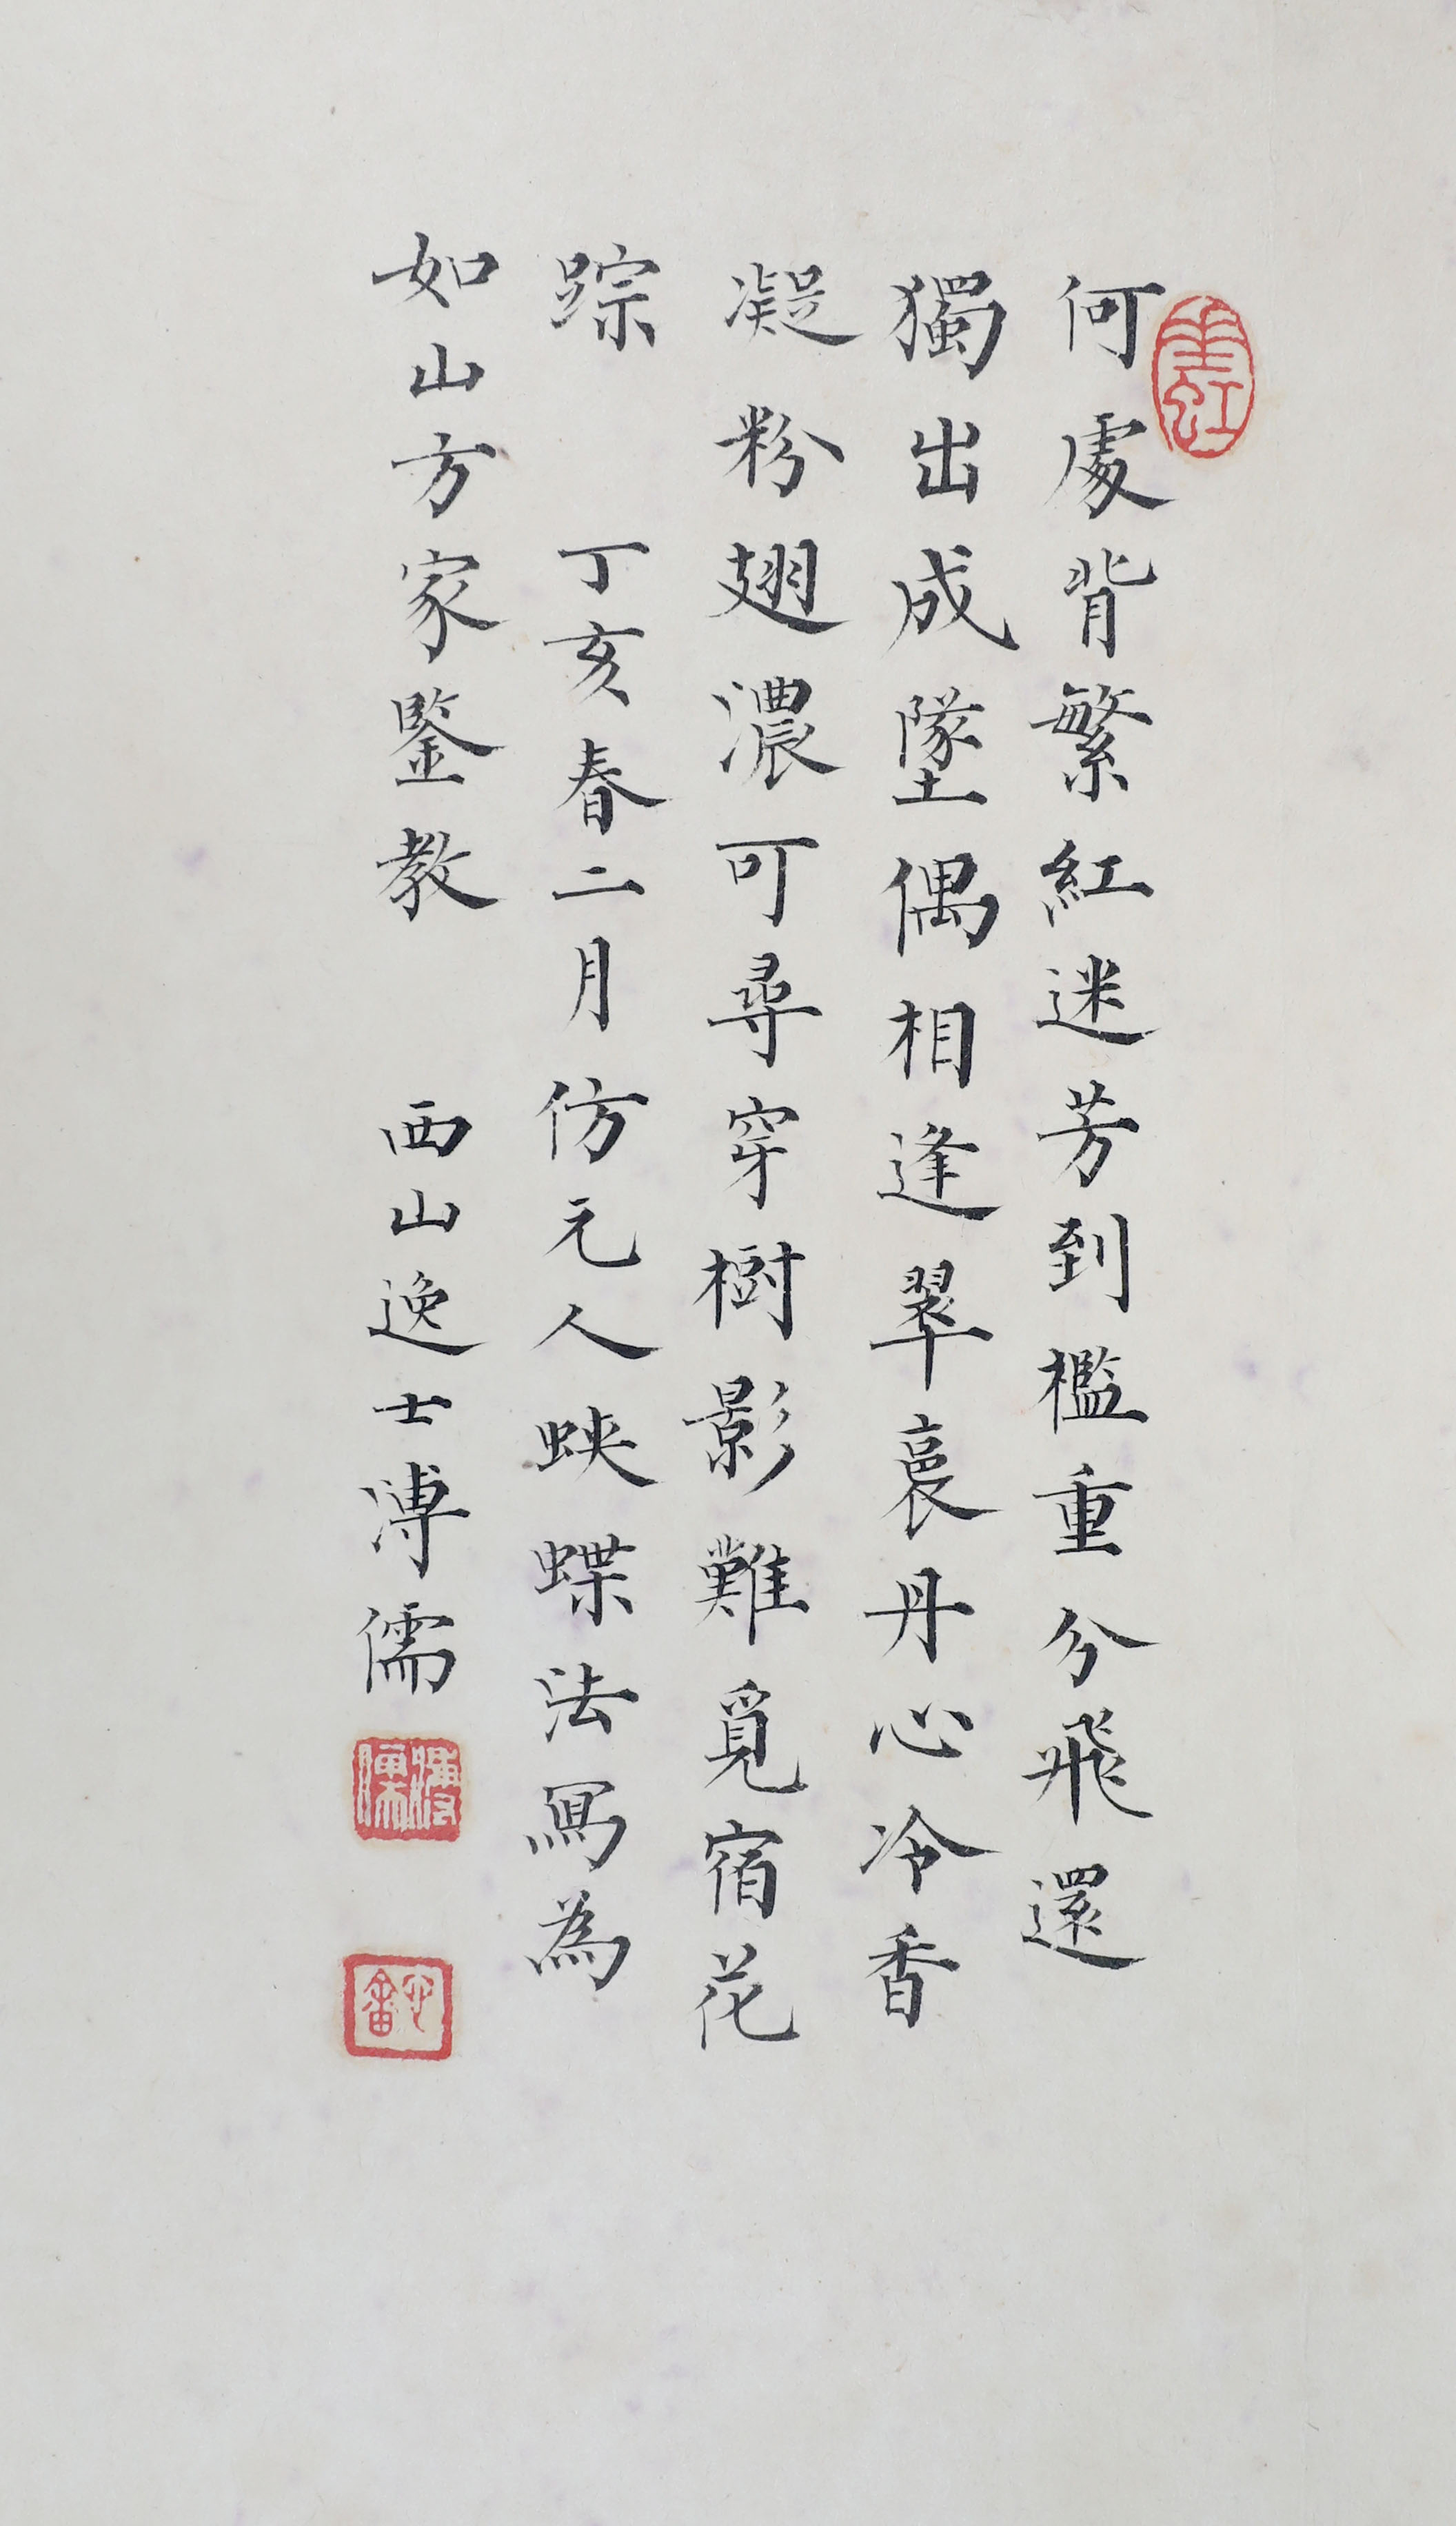 何處背繁紅迷芳到檻重分飛還
獨出成墜偶相逢翠裛丹心冷香
凝粉翅濃可尋穿樹影難覓宿花
踪 丁亥春二月仿元人蛺蝶法寫為
如山方家鑒教 西山逸士溥儒